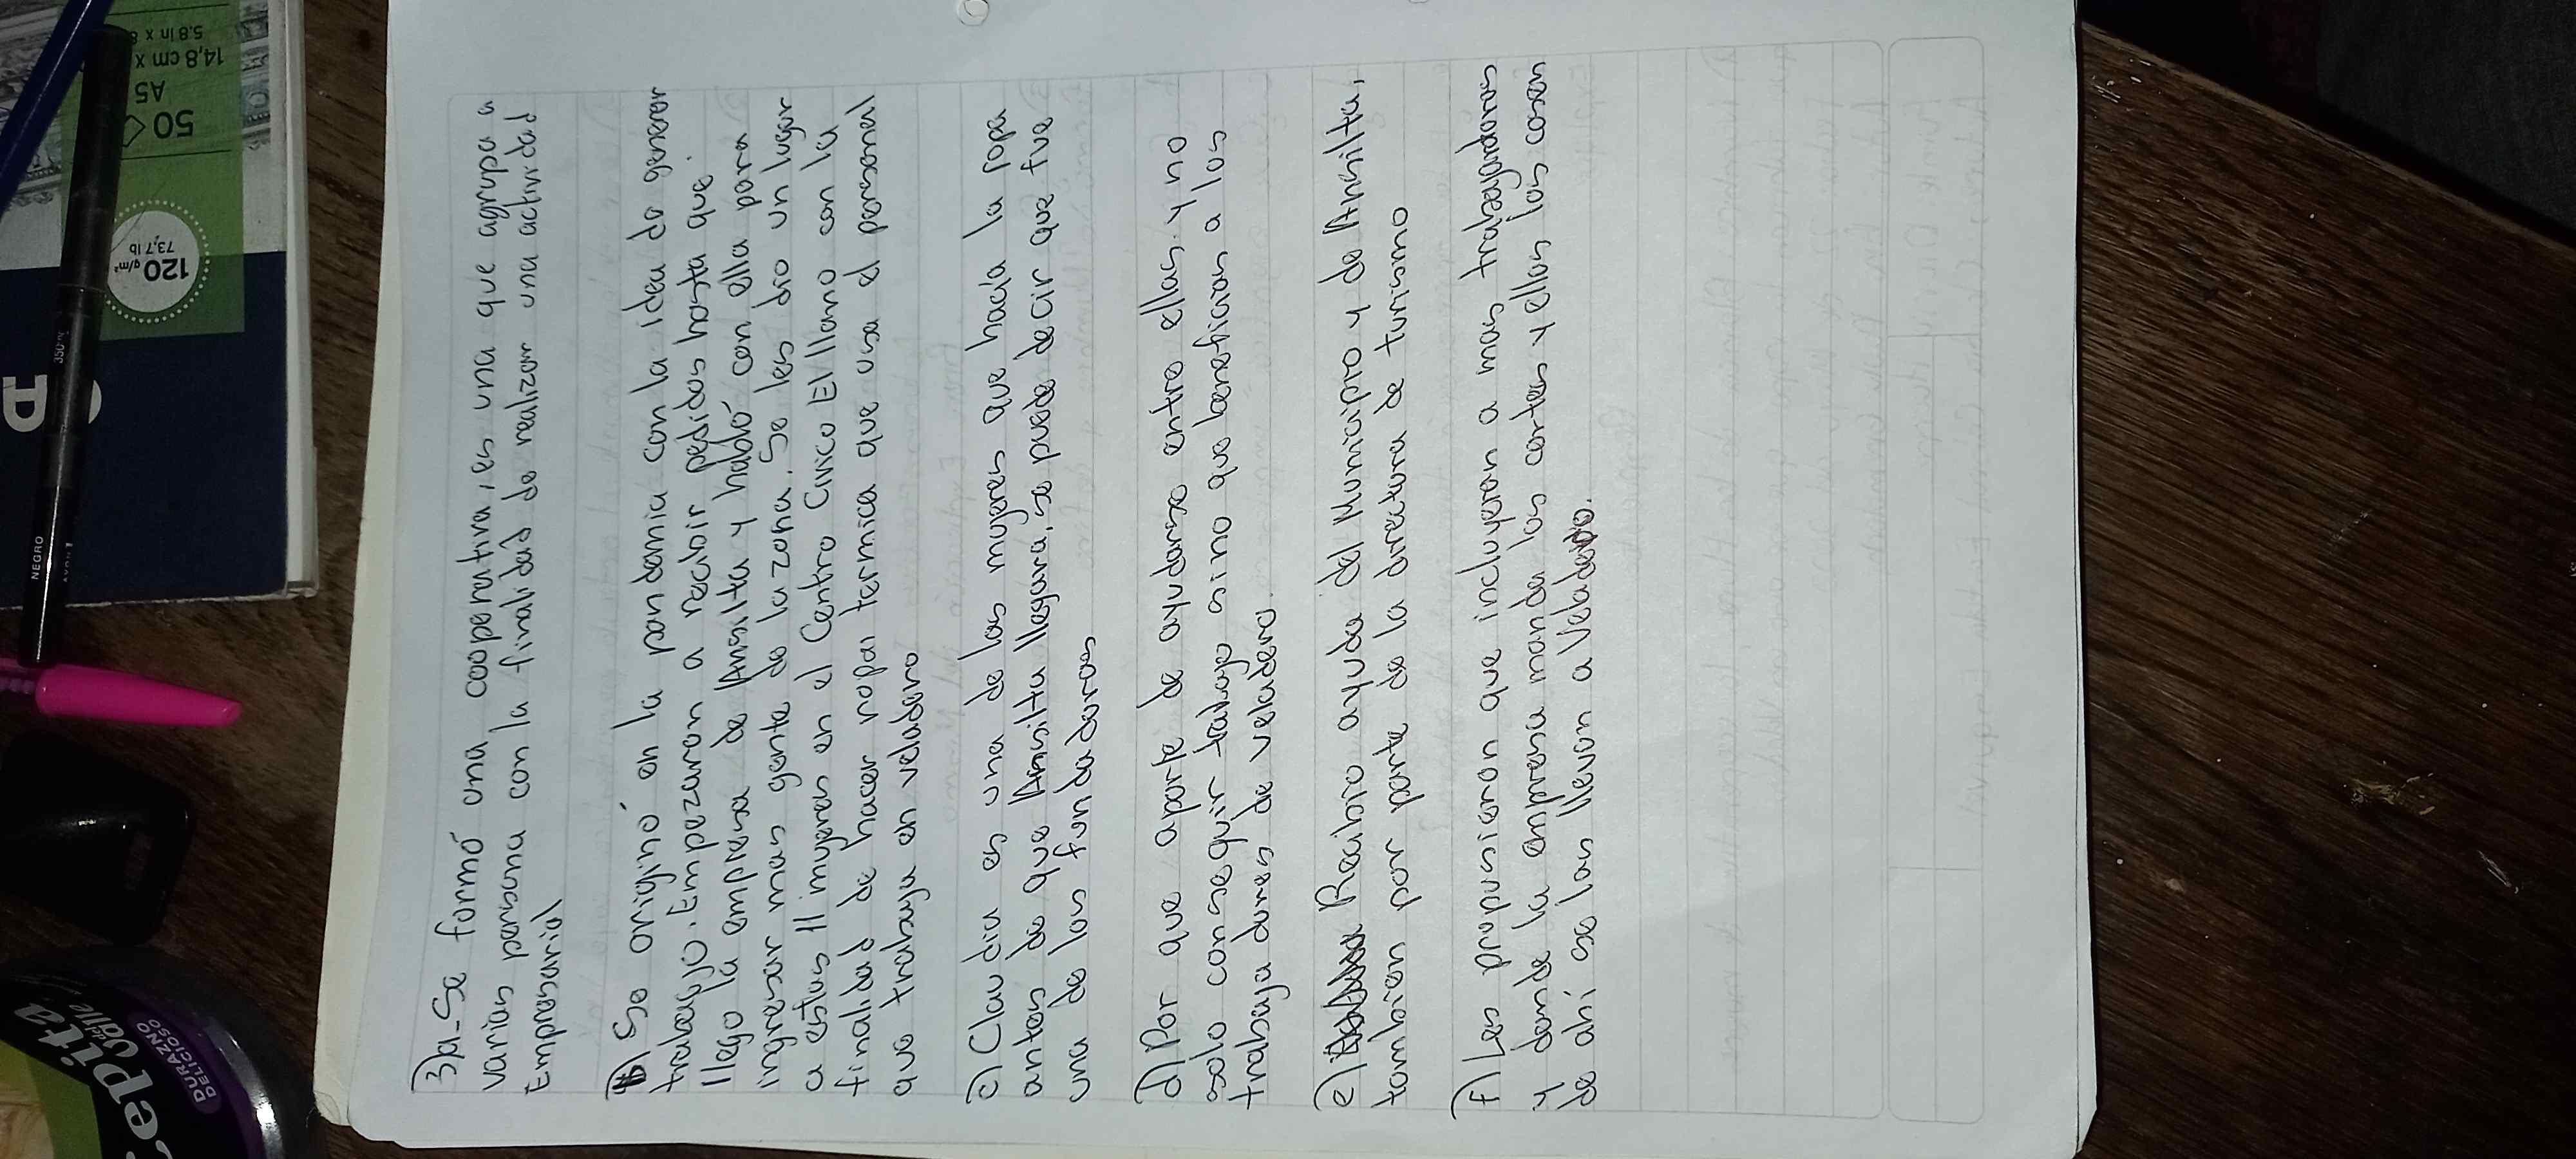 3)a_Se formó una cooperativa, es una que agrupa a
varias persona con la finalidad de realizar una actividad
Empresarial
b) Se originó en la pandemia con la idea de generar
trabajo. Empezaron a recibir pedidos hasta que.
llego la empresa de Ansilta y habló con ella para
ingresar mas gente de la zona. Se les dio un lugar
a estas 11 mujeres en el Centro Civico El llano con la
finalidad de hacer ropa termica que usa el personal
que trabaja en veladero
c) Claudia es una de las mujeres que hacía la ropa
antes de que Ansilta llegara, se puede decir que fue
una de las fundadoras
d) Por que aparte de ayudarse entre ellas y no
solo conseguir trabajo sino que benefician a los
trabajadores de veladero.
e) Recibio ayuda del Municipio y de Ansilta,
tambien por parte de la directura de turismo
f) Les propusieron que incluyeran a mas trabajadoras
y donde la empresa manda los cortes y ellas las cosen
de ahí se las llevan a Veladero.
50
A5
14,8 cm x
5.8 in x 8
120 g/m²
73,7 lb
NEGRO
350
epita
del Valle
DURAZNO
DELICIOSO